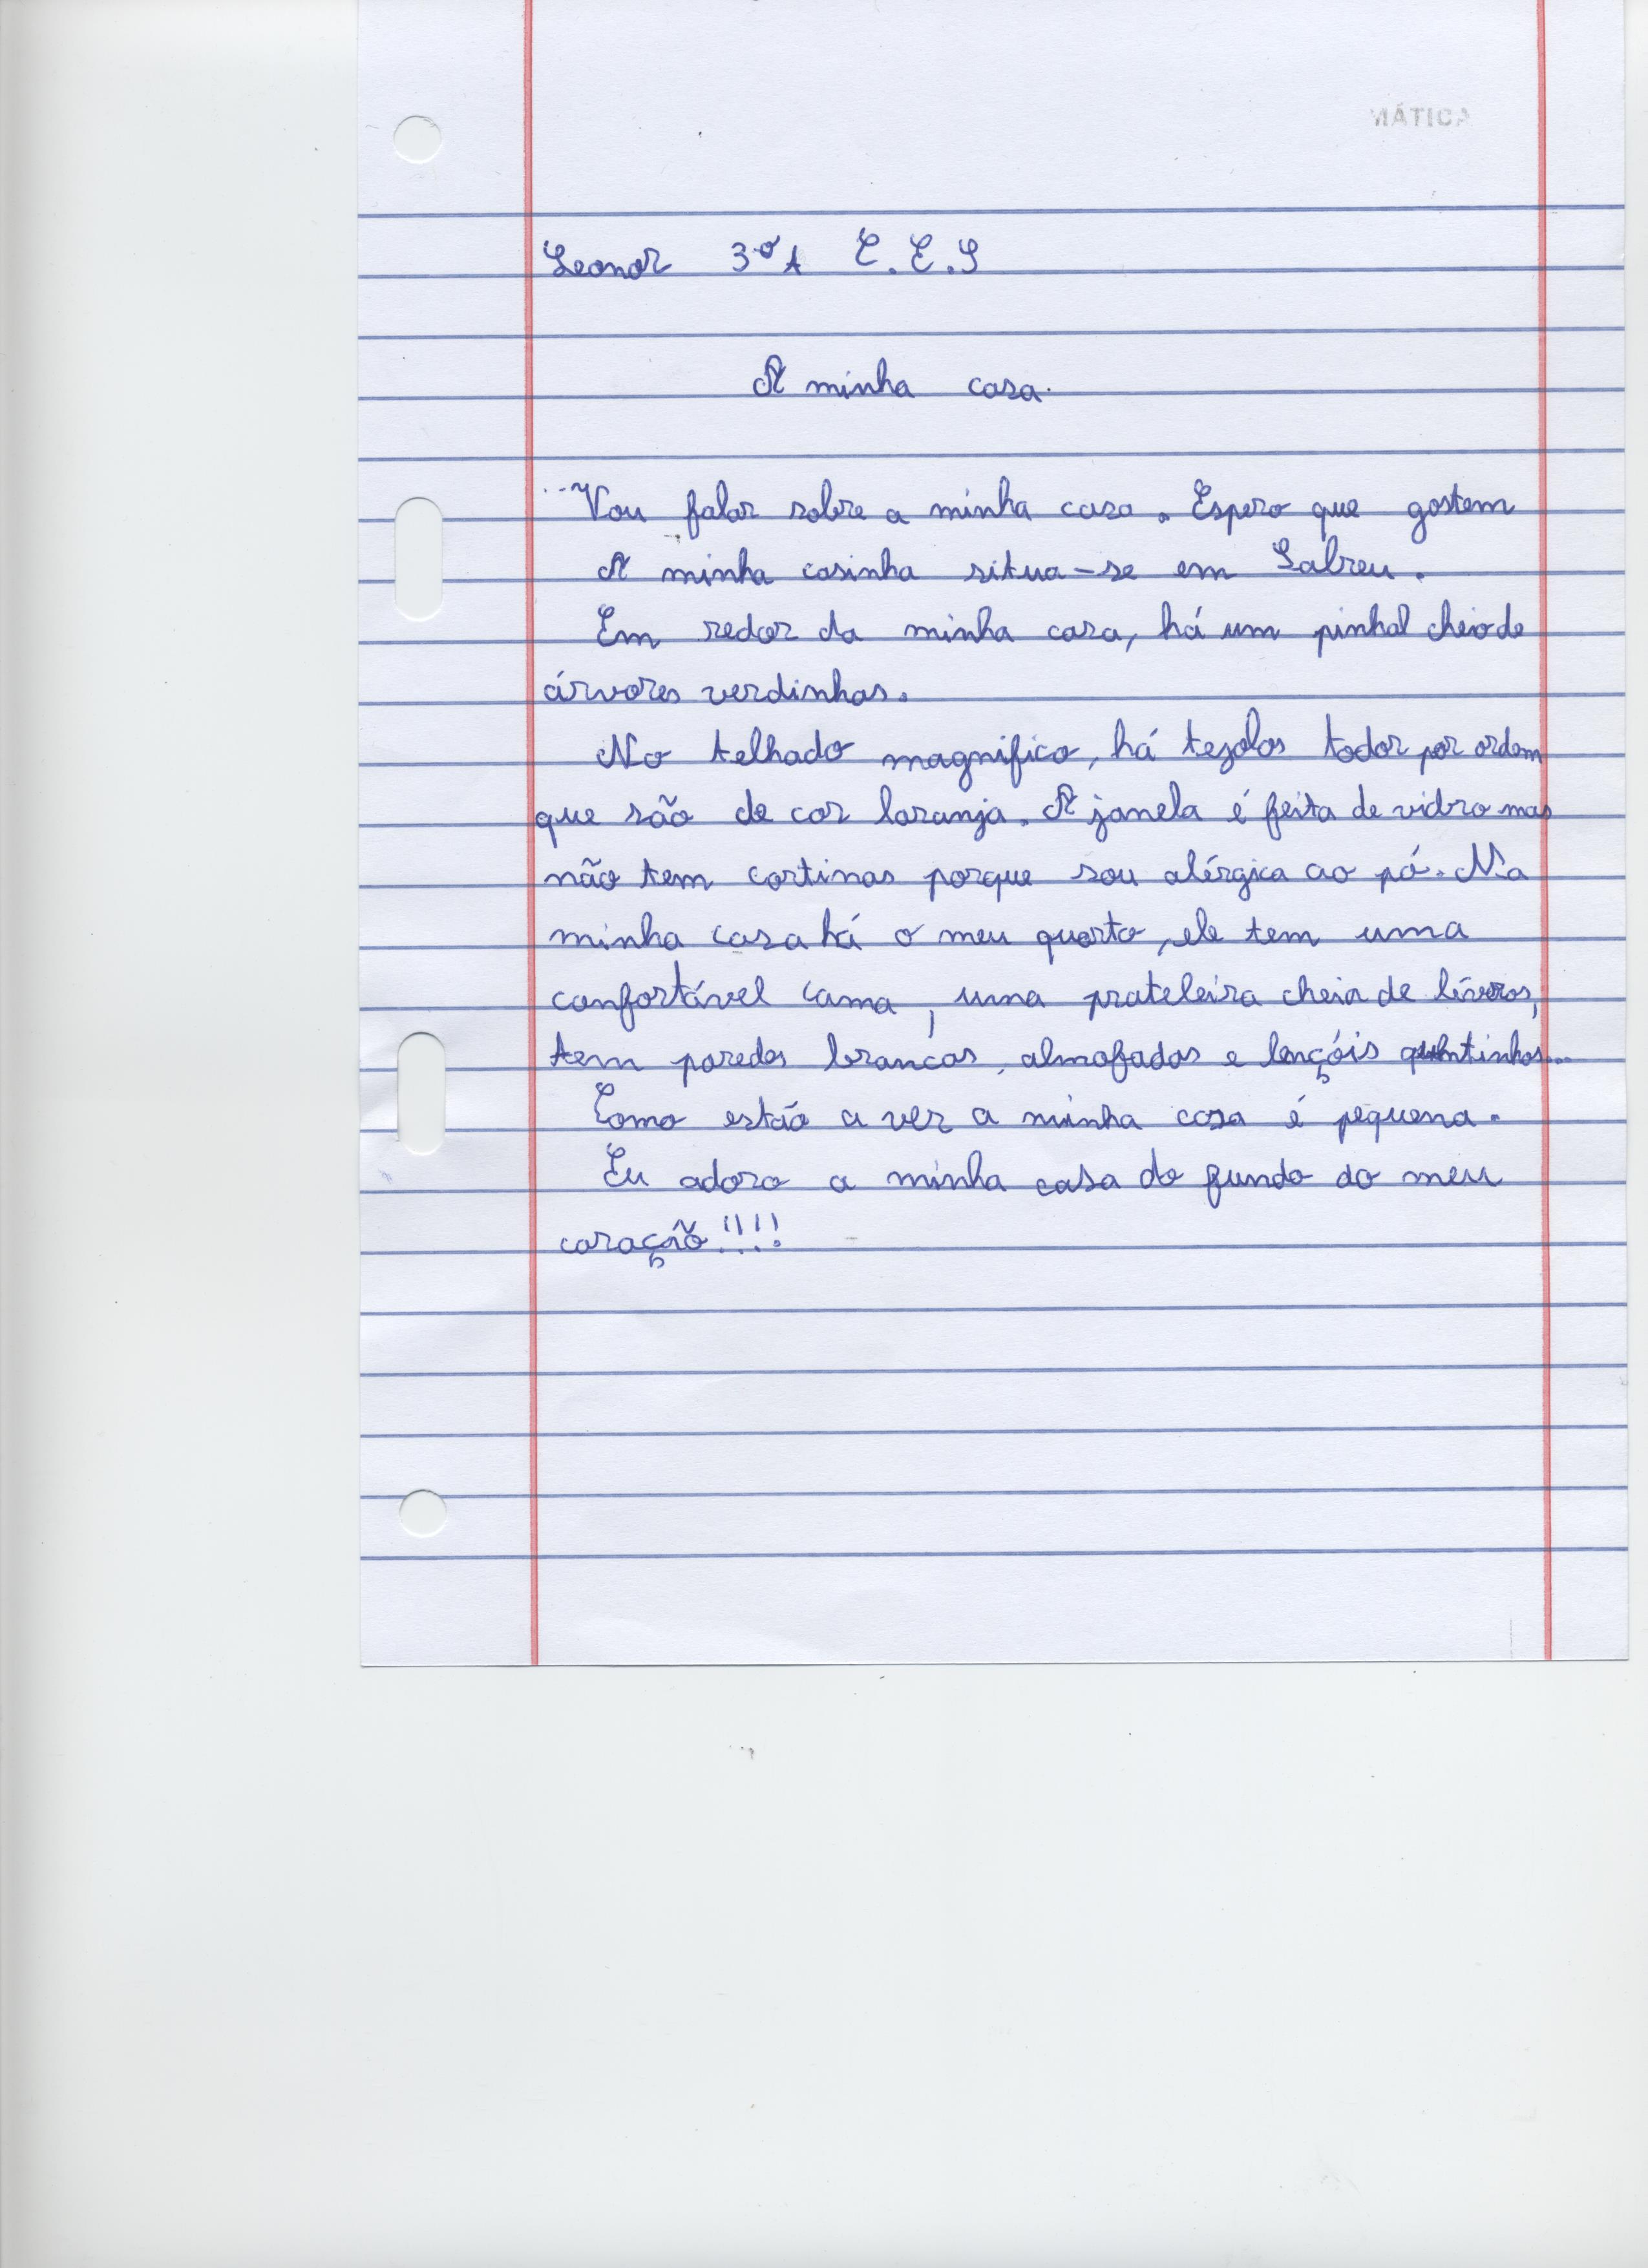 MÁTICA
Leonor 3ºA C.E.L
A minha casa.
Vou falar sobre a minha casa. Espero que gostem
A minha casinha situa-se em Sabreu.
Em redor da minha casa, há um pinhal cheio de
árvores verdinhas.
No telhado magnifico, há tejolos todor por ordem
que são de cor laranja. A janela é feita de vidro mas
não tem cortinas porque sou alérgica ao pó. Na
minha casa há o meu quarto, ele tem uma
confortável cama, uma prateleira cheia de livros,
tem paredes brancas, almofadas e lençóis quentinhos...
Como estão a ver a minha casa é pequena.
Eu adoro a minha casa do fundo do meu
coração!!!!